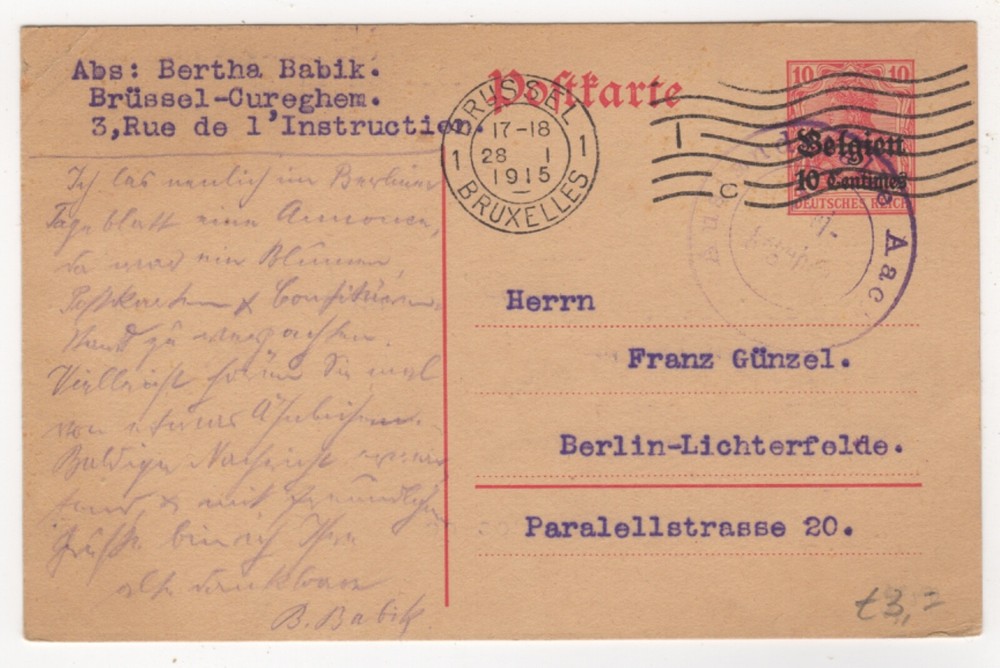 Abs: Bertha Babik.
Brüssel-Cureghem.
3,Rue de l'Instruction.
Postkarte
BRUSSEL
17-18
1 28 1 1
1915
BRUXELLES
10 10
Belgien
10 Centimes
DEUTSCHES REICH
Aac
Ich las neulich im Berliner
Tageblatt eine Annonce,
da war ein Blumen,
Postkarten & Confitüren
Stand zu verpachten.
Vielleicht hören Sie mal
von etwas Ähnlichem.
Baldige Nachricht
& mit freundlichem
Gruße bin ich Ihre
alte dankbare
B. Babik
Herrn
Franz Günzel.
Berlin-Lichterfelde.
Paralellstrasse 20.
€3,-